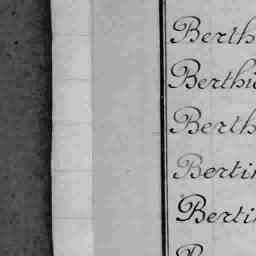 Berth
Berthi
Berth
Bertin
Berti